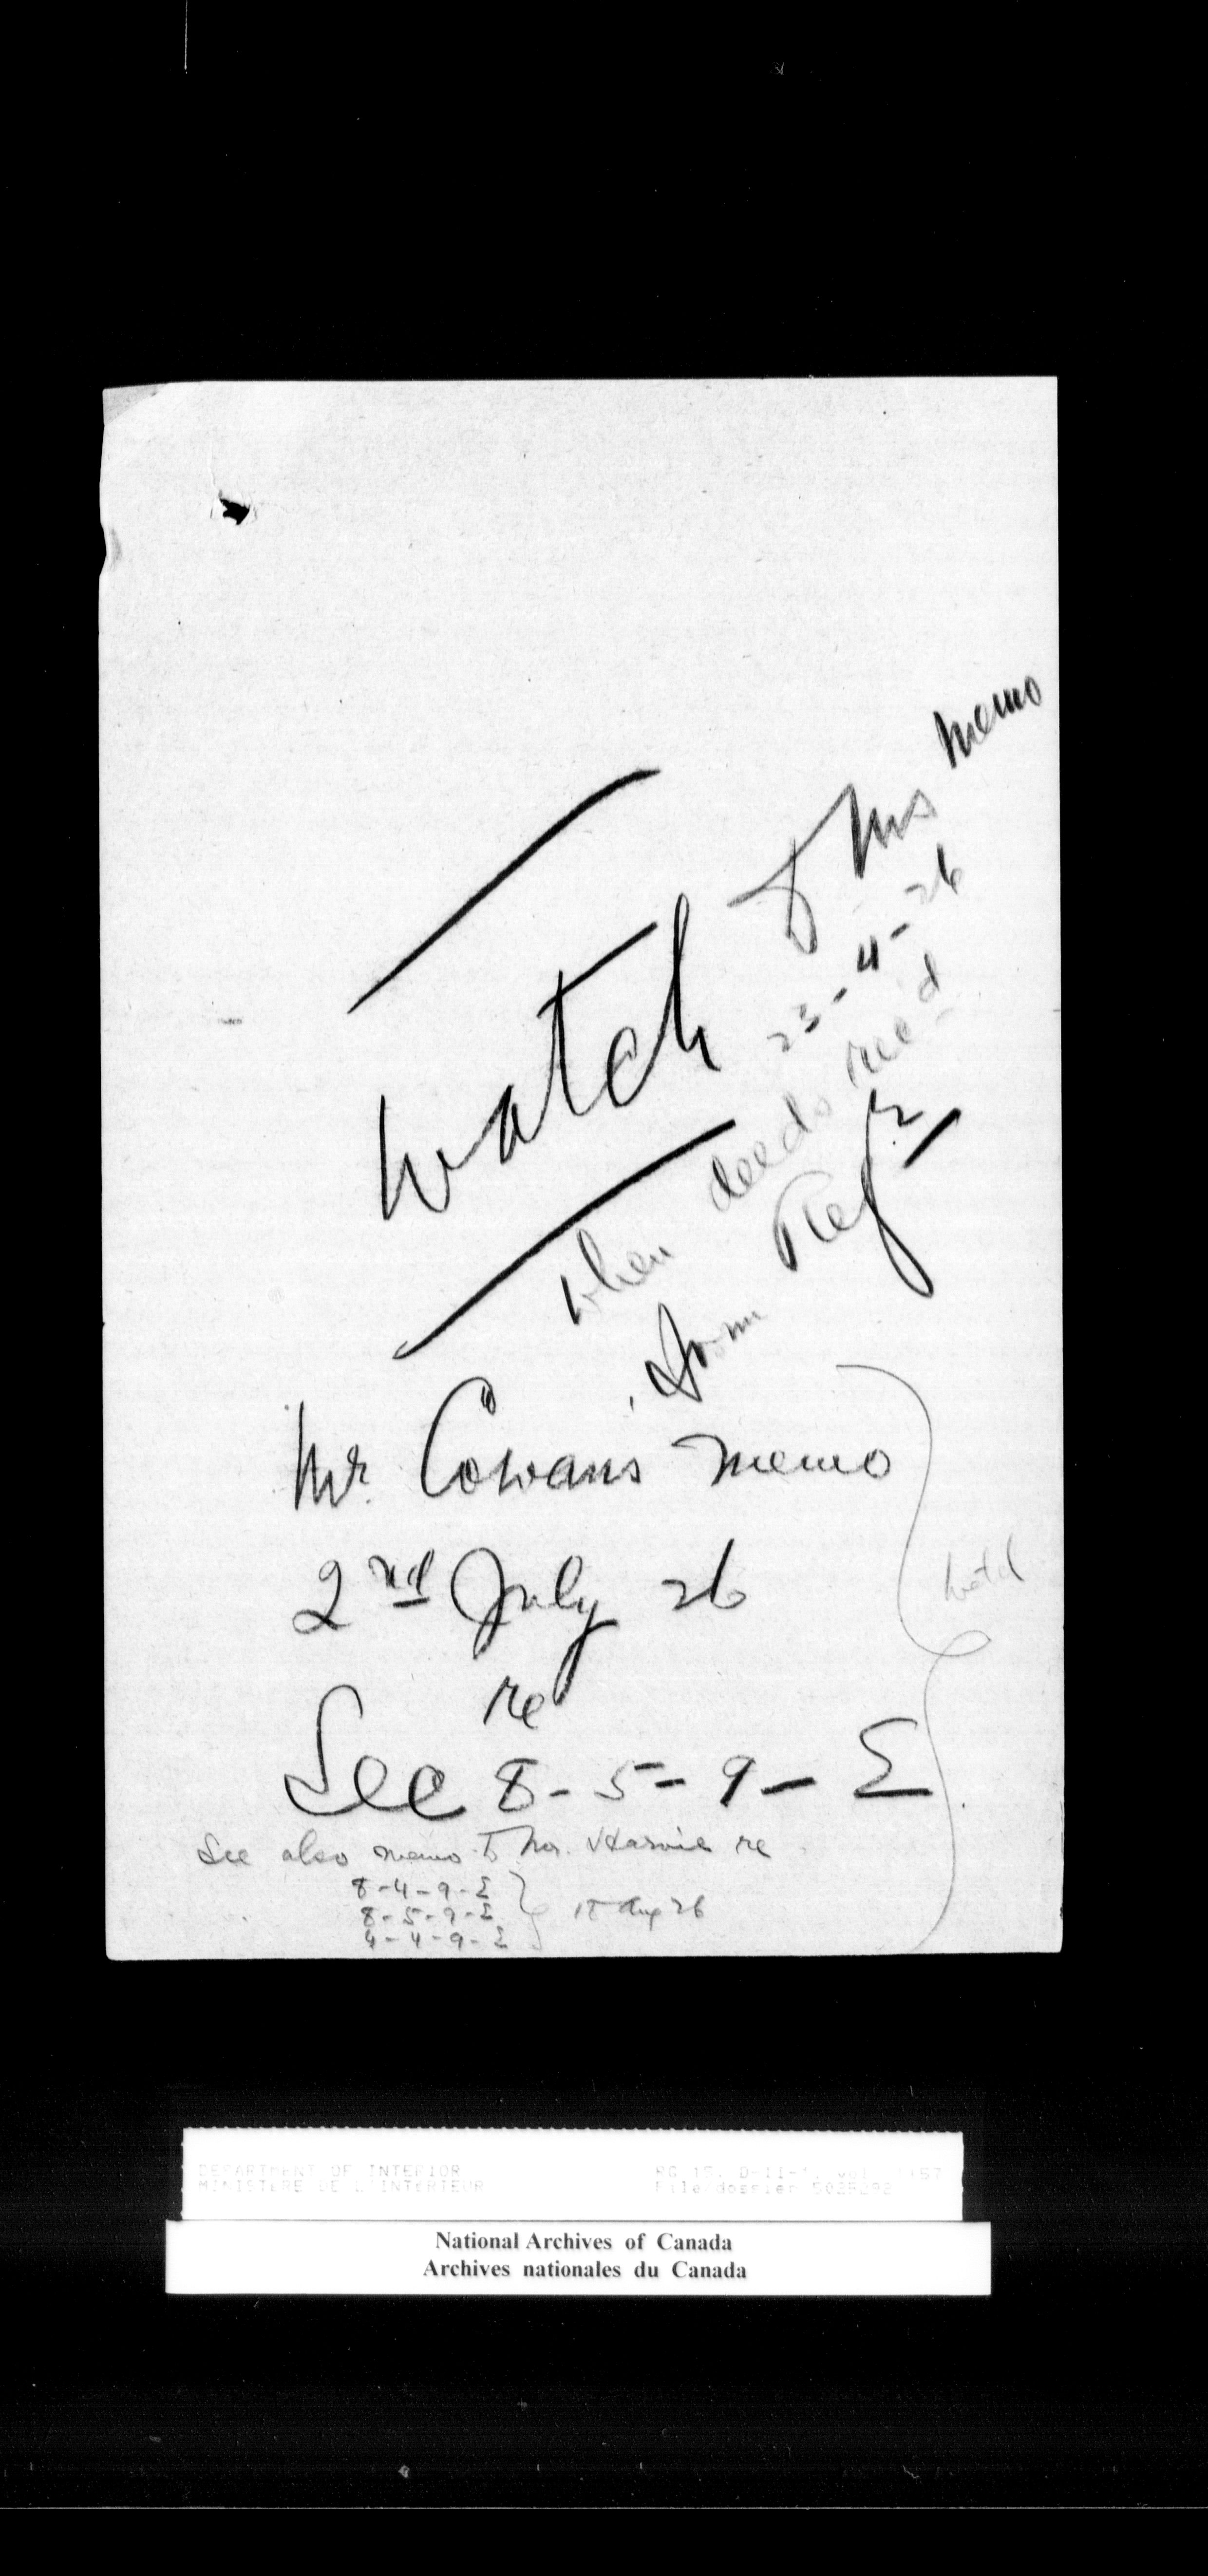 Watch
& Mrs memo
23-4-26
when deeds rec'd
from Regr
Mr. Cowans memo
2nd July 26
re
See 8-5-9-E
watch
See also memo to Mr. Harvie re
8-4-9-E
8-5-9-E
4-4-9-E
18 Aug 26
DEPARTMENT OF INTERIOR
MINISTERE DE L'INTERIEUR
RG 15, D-II-1, vol.
File/dossier 5028292
National Archives of Canada
Archives nationales du Canada